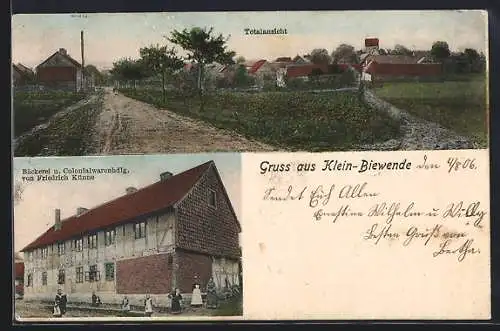 Totalansicht
Bäckerei u. Colonialwarenhdlg.
von Friedrich Künne
Gruss aus Klein-Biewende den 4/8 06.
Sendet Euch Allen
Ernestine Wilhelm u Willy
Besten Gruß von
Bertha.